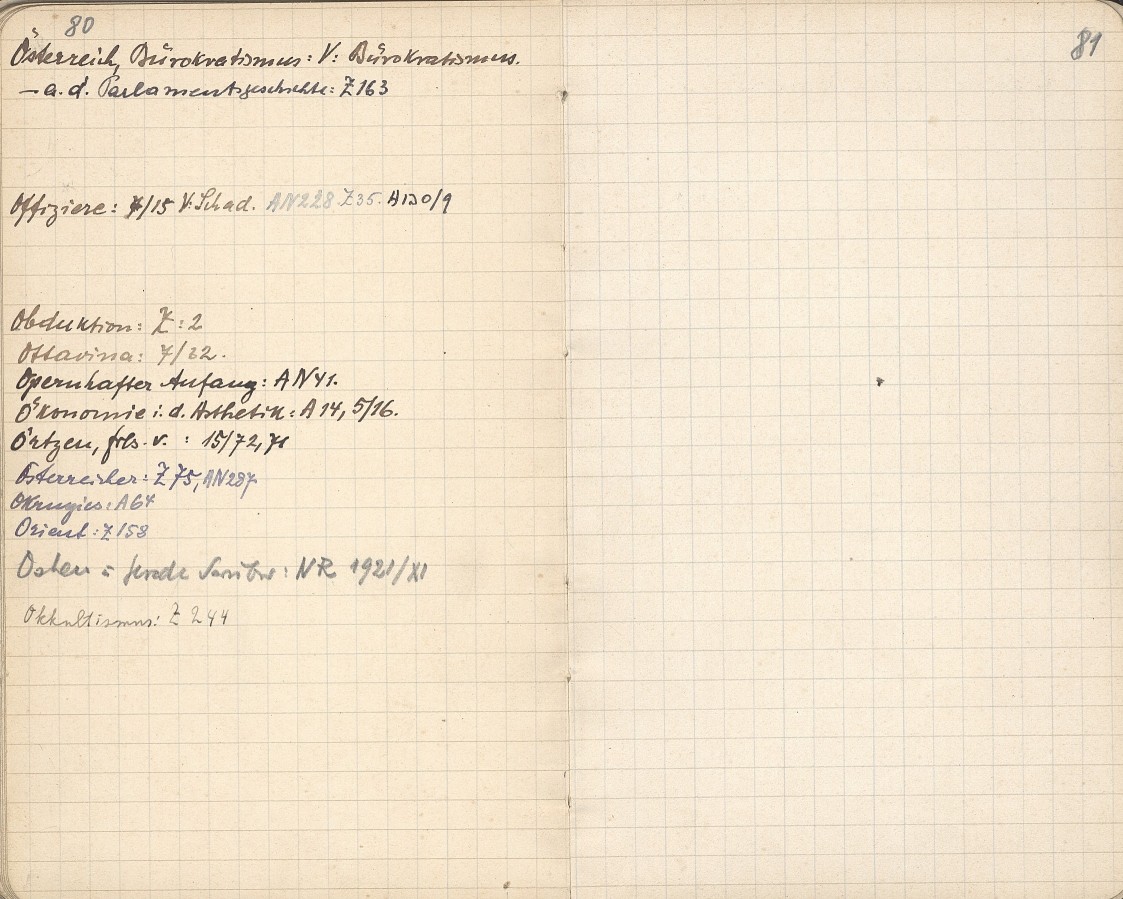 80
Österreich, Bürokratismus: V: Bürokratismus.
– a. d. Parlamentsgeschichte: Z 163
Offiziere: 7/15 V: Schad. AN 228 Z 35. A 130/9
Obduktion: Z: 2
Ottavina: 7/32.
Opernhafter Anfang: AN 41.
Ökonomie i. d. Ästhetik: A 14, 5/16.
Örtzen, v. : 15/72,
Österreicher: Z 75, AN 287
A 64
Orient: Z 158
Osten u : NR 1921/XI
Okkultismus: Z 244
81